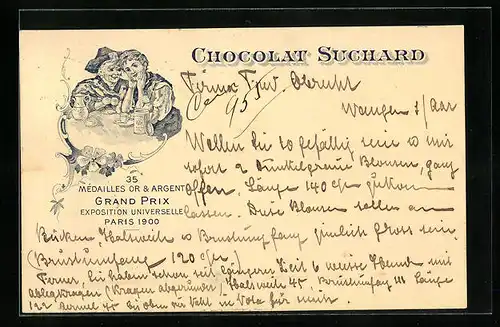 CHOCOLAT SUCHARD
35
MÉDAILLES OR & ARGENT
GRAND PRIX
EXPOSITION UNIVERSELLE
PARIS 1900
Firma Obrecht
Wangen a/Aar
Wollen Sie so gefällig sein & mir
sofort 2 dunkelgraue Blousen, ganz
offen, Länge 140 c/m zukom
lassen. Diese Blousen sollen am
Rücken, Halsweite & Brustumfang ziemlich gross sein.
(Brustumfang 120 c/m)
Ferner, Sie haben schon seit längerer Zeit 6 weisse Hemd mit
Kragen (Kragen abgerundet) Halsweite 45, Brustumfang 111 Länge
122 Aermel 45